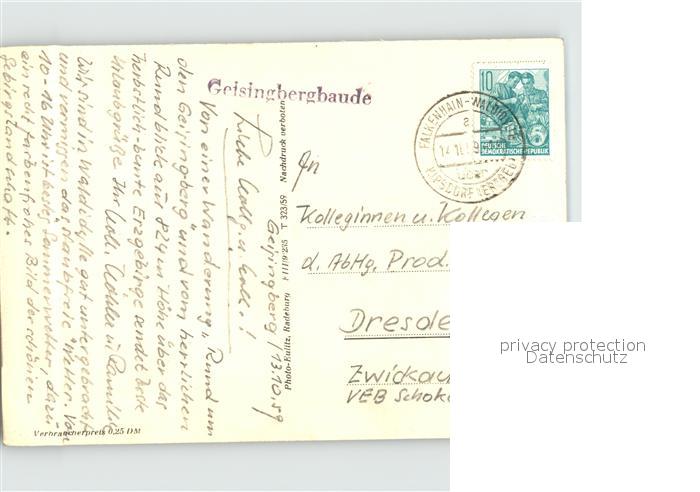 Geisingbergbaude
Geisingberg/13.10.59
Liebe Kollg. u. Koll.!
Von einer Wanderung „Rund um
den Geisingberg" und vom herrlichen
Rundblick aus 824 m Höhe über das
herbstlich-bunte Erzgebirge sendet beste
Urlaubsgrüße Ihr Koll. u Familie
Wir sind in Waldidylle gut untergebracht
und vermissen das staubfreie Wetter. Von
10-16 Uhr ist bestes Sommerwetter, dazu
ein recht farbenfrohes Bild der schönen
Gebirgslandschaft.
Verbraucherpreis 0,25 DM
Photo-Kulitz, Radeburg F III/9/235 T 323/59 Nachdruck verboten
10
DEUTSCHE
DEMOKRATISCHE REPUBLIK
FALKENHAIN-WALDIDYLLE
a
über
KIPSDORF (ERZGEB)
An
Kolleginnen u. Kollegen
d. AbHg. Prod.
Dresde
Zwickau
VEB Schok
privacy protection
Datenschutz